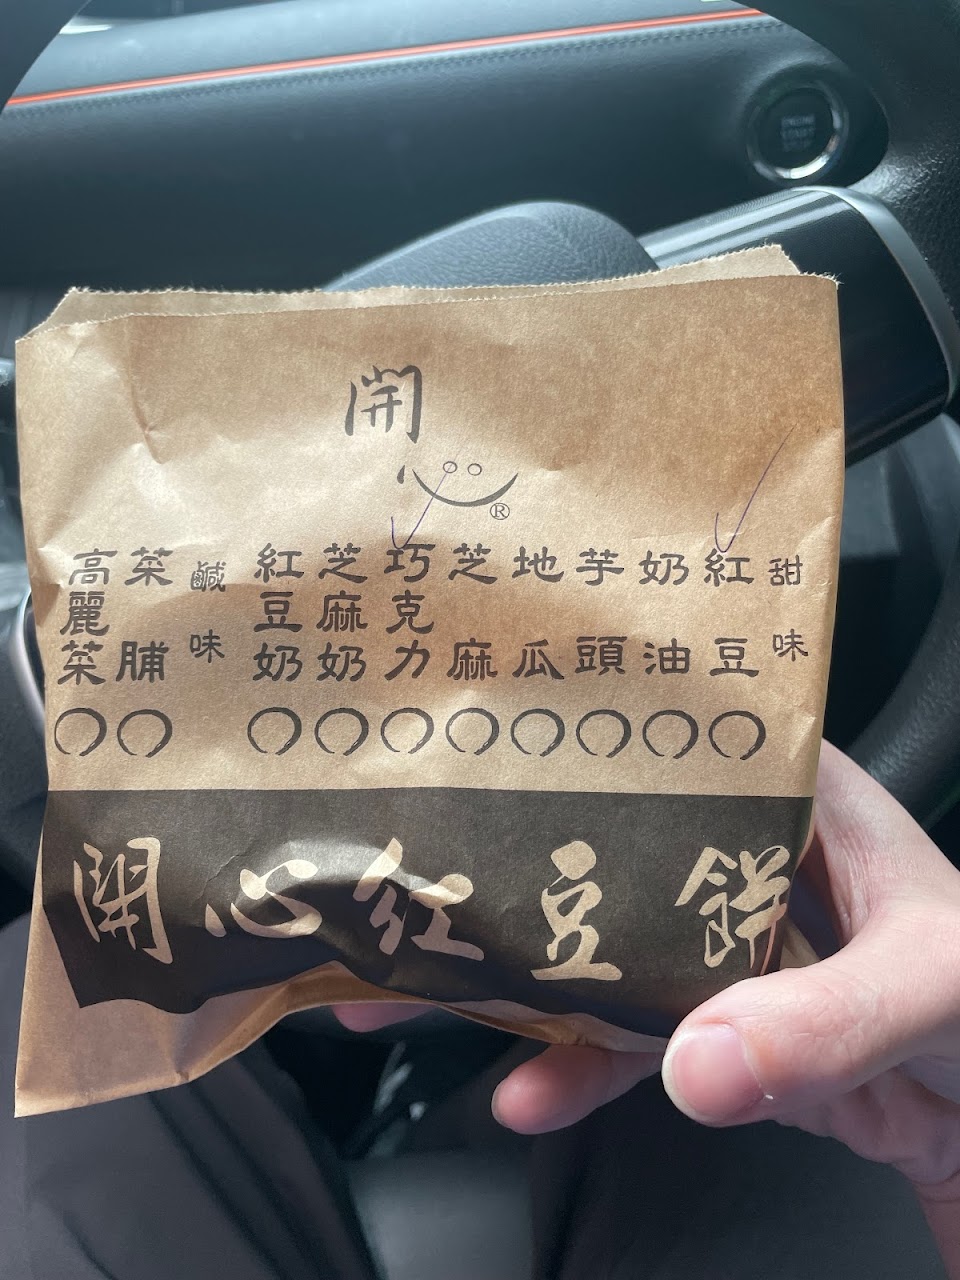 開
®
甜味
紅豆
奶油
芋頭
地瓜
芝麻
巧克力
芝麻奶
紅豆奶
鹹味
菜脯
高麗菜
開心紅豆餅
ENGINE
START